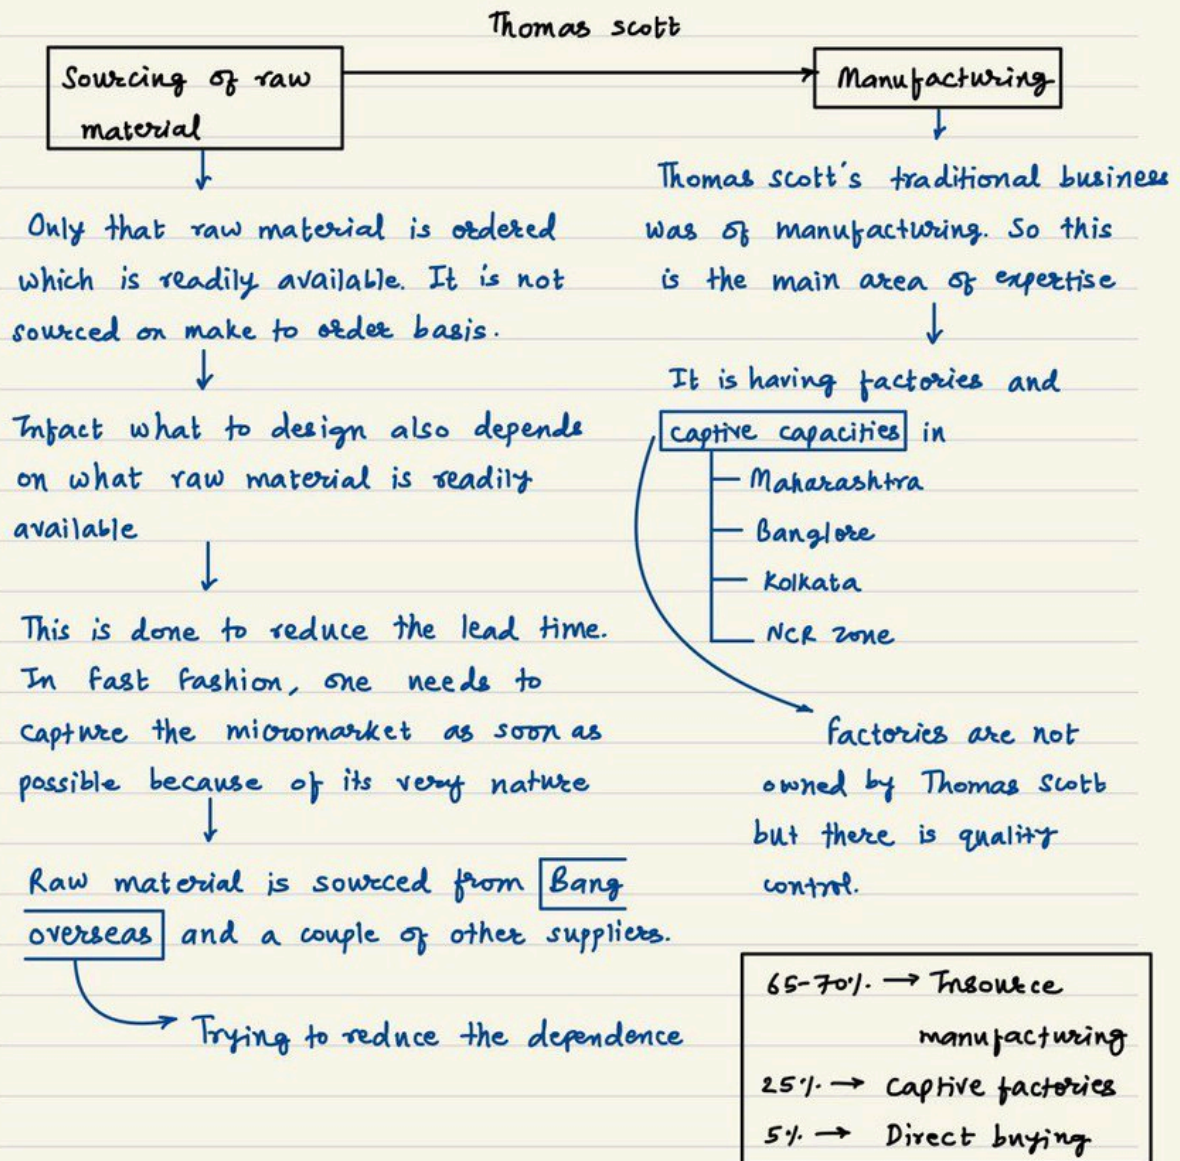 Thomas scott
Sourcing of raw
material
Only that raw material is ordered
which is readily available. It is not
sourced on make to order basis.
Infact what to design also depends
on what raw material is readily
available
This is done to reduce the lead time.
In fast fashion, one needs to
capture the micromarket as soon as
possible because of its very nature
Raw material is sourced from Bang
overseas and a couple of other suppliers.
Trying to reduce the dependence
Manufacturing
Thomas scott's traditional business
was of manufacturing. So this
is the main area of expertise
It is having factories and
captive capacities in
Maharashtra
Banglore
Kolkata
NCR zone
factories are not
owned by Thomas Scott
but there is quality
control.
65-70% → Insource
manufacturing
25% → Captive factories
5% → Direct buying